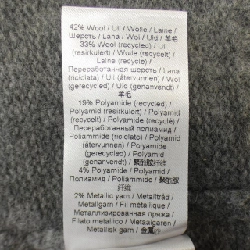 42% Wool / Ull / Wolle / Laine /
Шерсть / Lana / Wol / Uld / 羊毛
33% Wool (recycled) / Ull
(resirkulert) / Wolle (recycelt) /
Laine (recyclé) /
Переработанная шерсть / Lana
(riciclata) / Ull (återvunnen) / Wol
(gerecycled) / Uld (genanvendt) /
羊毛
19% Polyamide (recycled) /
Polyamid (resirkulert) / Polyamid
(recycelt) / Polyamide (recyclé) /
Переработанный полиамид /
Poliammide (riciclato) / Polyamid
(återvunnen) / Polyamide
(gerecycled) / Polyamid
(genanvendt) / 聚酰胺纤维
4% Polyamide / Polyamid /
Полиамид / Poliammide / 聚酰胺
纤维
2% Metallic yarn / Metalltråd /
Metallgarn / Fil métallique /
Металлизированная пряжа /
Filato metallico / Metallgaren /
Metallisk garn / 金属